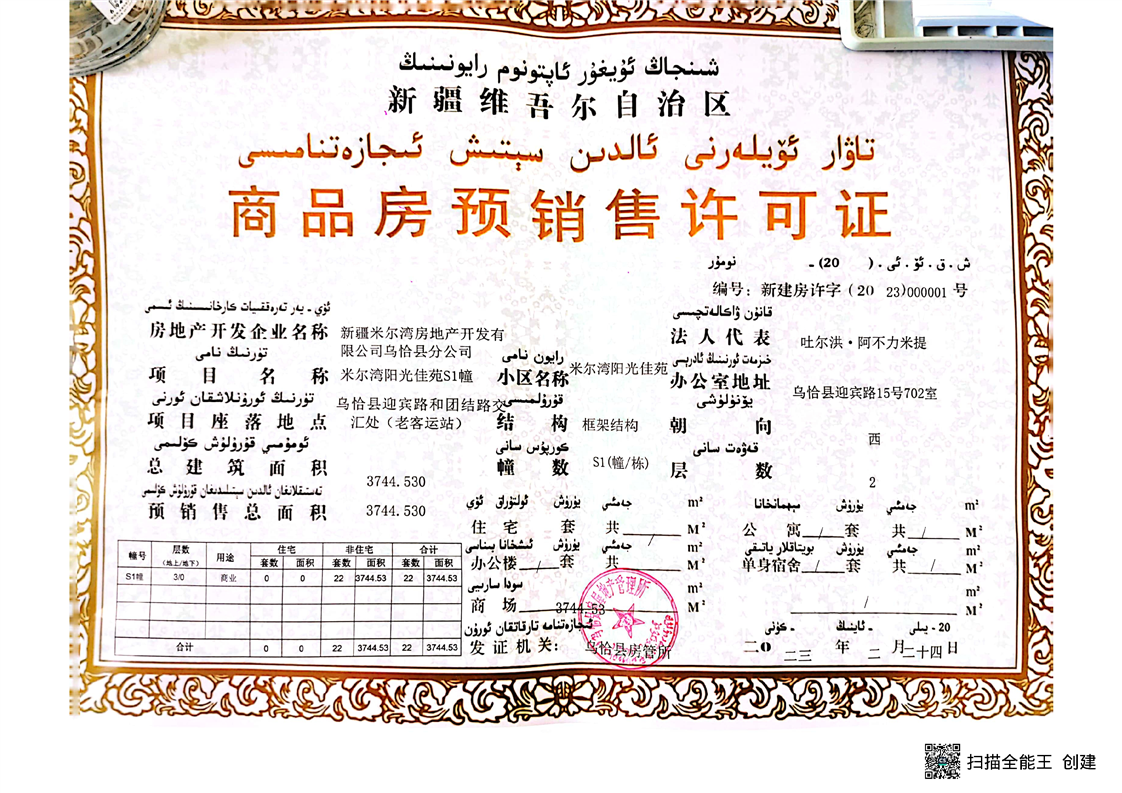 شىنجاڭ ئۇيغۇر ئاپتونوم رايونىنىڭ
新疆维吾尔自治区
تاۋار ئۆيلەرنى ئالدىن سېتىش ئىجازەتنامىسى
商品房预销售许可证
ش . ق . ئۆ . ئى . ( 20) ـ نومۇر
编号：新建房许字（20 23)000001 号
ئۆي - يەر تەرەققىيات كارخانىسىنىڭ ئىسمى
房地产开发企业名称 新疆米尔湾房地产开发有限公司乌恰县分公司
قانۇن ۋاكالەتچىسى
法人代表 吐尔洪·阿不力米提
تۈرنىڭ نامى
项目名称 米尔湾阳光佳苑S1幢
رايون نامى
小区名称 米尔湾阳光佳苑
خىزمەت ئورنىنىڭ ئادرېسى
办公室地址 乌恰县迎宾路15号702室
تۈرنىڭ ئورۇنلاشقان ئورنى
项目座落地点 乌恰县迎宾路和团结路交汇处（老客运站）
قۇرۇلمىسى
结构 框架结构
يۆنۈلۈشى
朝向 西
ئومۇمىي قۇرۇلۇش كۆلىمى
总建筑面积 3744.530
كورپۇس سانى
幢数 S1(幢/栋)
قەۋەت سانى
层数 2
预销售总面积 3744.530
ئولتۇراق ئۆي يۈرۈش جەمئىي m²
住宅 套 共 / M²
مېھمانخانا يۈرۈش جەمئىي m²
公寓 / 套 共 / M²
ئىشخانا بىناسى يۈرۈش جەمئىي m²
办公楼 / 套 共 M²
بويتاقلار ياتىقى يۈرۈش جەمئىي m²
单身宿舍 / 套 共 / M²
سودا سارىيى m²
商场 3744.53 M²
m²
/ M²
幢号 层数（地上/地下） 用途 住宅 非住宅 合计
套数 面积 套数 面积 套数 面积
S1幢 3/0 商业 0 0 22 3744.53 22 3744.53
合计 0 0 22 3744.53 22 3744.53
ئىجازەتنامە تارقاتقان ئورۇن
发证机关： 乌恰县房管所
20 - يىلى - ئاينىڭ - كۈنى
二0二三年二月二十四日
扫描全能王 创建